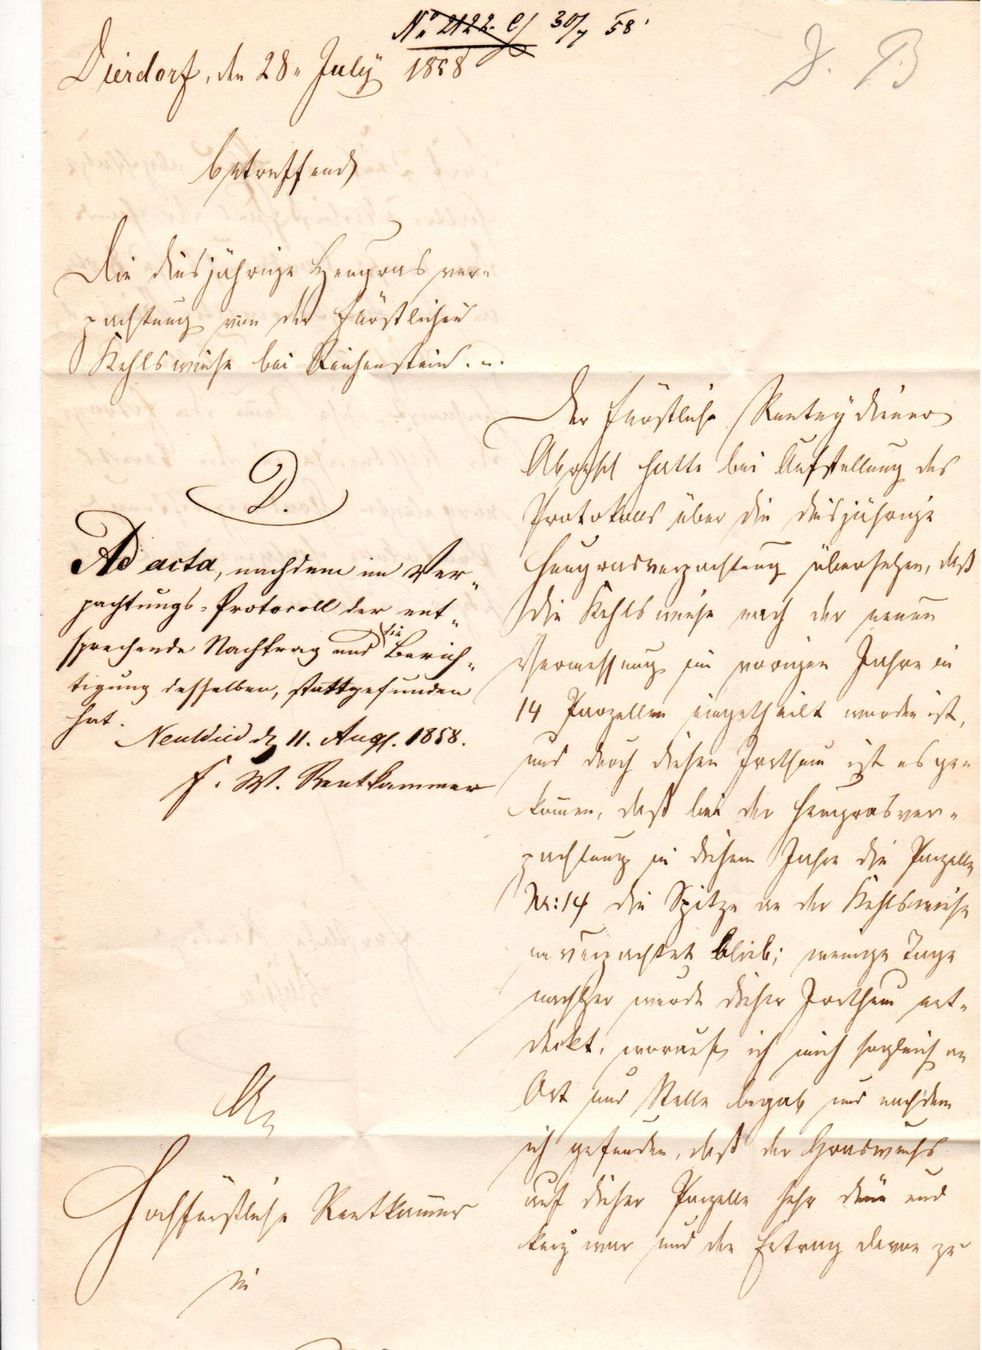 No 2122. C/ 30/7 58.
D. B
Dierdorf, den 28ten July 1858
betreffend
Die diesjährige Heugras ver-
pachtung von der Fürstlichen
Kehlswiese bei Reichenstein.
D.
Ad acta, nachdem im Ver-
pachtungs-Protocoll der ent-
sprechende Nachtrag und die Berich-
tigung desselben, stattgefunden
hat.
Neuwied d 11. Augst. 1858.
F. W. Rentkammer
An
Hochfürstliche Rentkammer
in
Der fürstliche Rentey diener
hatte bei Aufstellung des
Protokolls über die diesjährige
Heugrasverpachtung übersehen, daß
die Kehlswiese nach der neuen
Vermessung im vorigen Jahre in
14 Parzellen eingetheilt worden ist,
und durch diesen Irrthum ist es ge-
kommen, daß bei der Heugrasver-
pachtung in diesem Jahre die Parzelle
Nr: 14 die Spitze an der Kehlswiese
unverpachtet blieb; wenige Tage
nachher wurde dieser Irrthum ent-
deckt, worauf ich mich sogleich an
Ort und Stelle begab und nachdem
ich gefunden, daß der Graswuchs
auf dieser Parzelle sehr dünn und
kurz war und der Ertrag davon zu